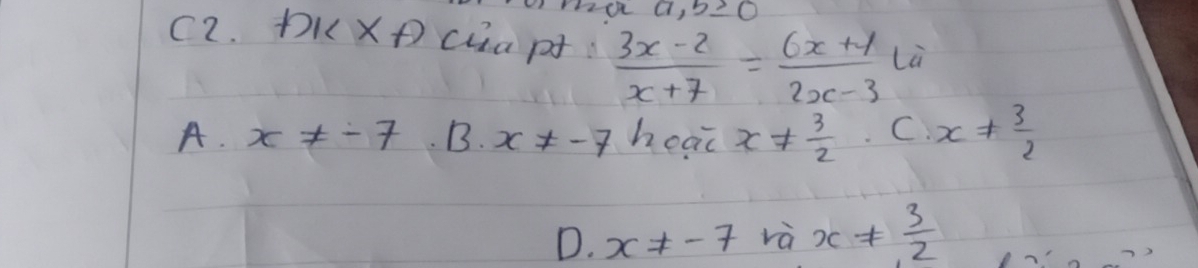 mọi a,b≥0
C2. ĐKXĐ của pt : \frac{3x-2}{x+7} = \frac{6x+1}{2x-3} là
A. x ≠ -7 . B. x ≠ -7 hoặc x ≠ \frac{3}{2} . C. x ≠ \frac{3}{2}
D. x ≠ -7 và x ≠ \frac{3}{2}